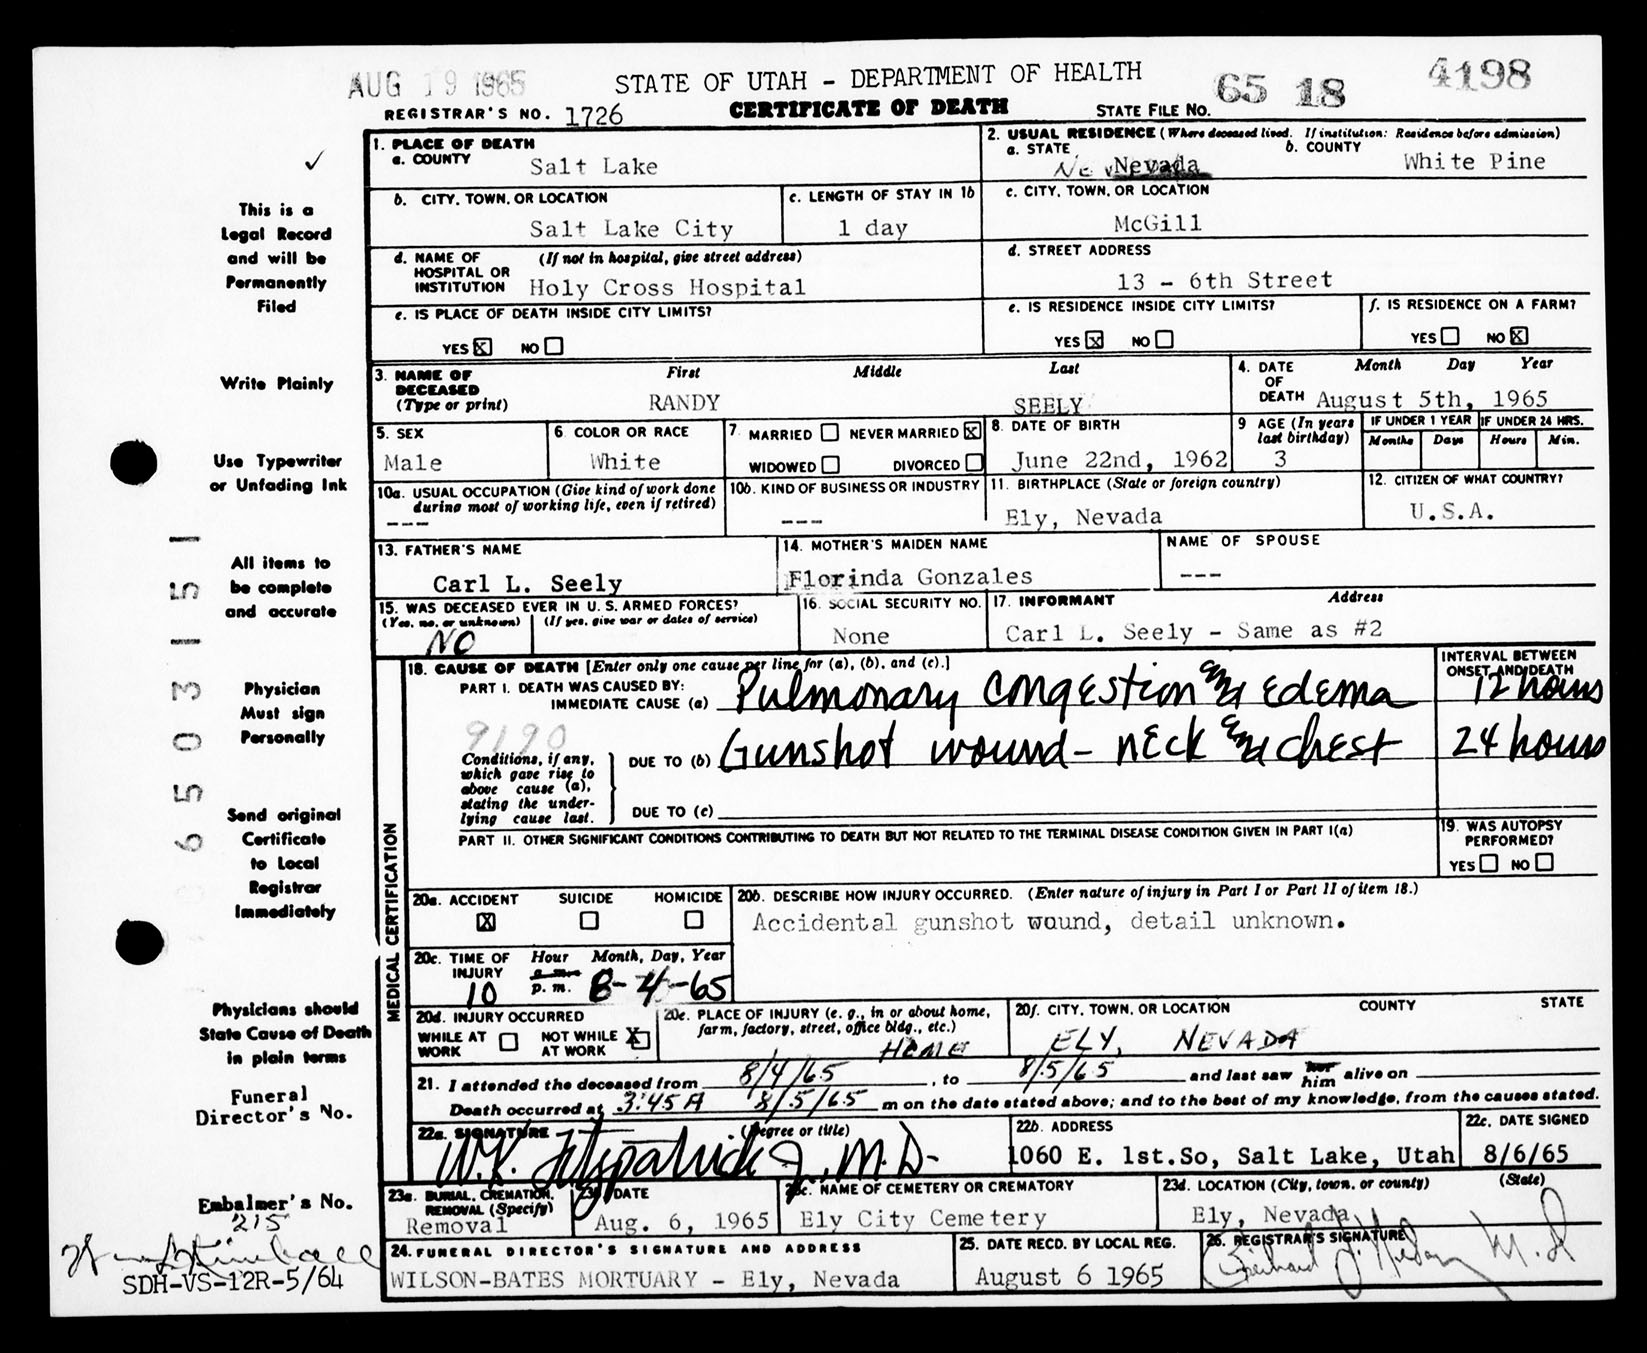 AUG 19 1965
STATE OF UTAH - DEPARTMENT OF HEALTH
65 18
4198
REGISTRAR'S NO. 1726
CERTIFICATE OF DEATH
STATE FILE NO.
This is a
Legal Record
and will be
Permanently
Filed
Write Plainly
Use Typewriter
or Unfading Ink
All items to
be complete
and accurate
Physician
Must sign
Personally
Send original
Certificate
to Local
Registrar
Immediately
Physicians should
State Cause of Death
in plain terms
Funeral
Director's No.
Embalmer's No.
215
SDH-VS-12R-5/64
1. PLACE OF DEATH
a. COUNTY
Salt Lake
2. USUAL RESIDENCE (Where deceased lived. If institution: Residence before admission)
a. STATE
Nevada
b. COUNTY
White Pine
b. CITY, TOWN, OR LOCATION
Salt Lake City
c. LENGTH OF STAY IN 1b
1 day
c. CITY, TOWN, OR LOCATION
McGill
d. NAME OF HOSPITAL OR INSTITUTION
(If not in hospital, give street address)
Holy Cross Hospital
d. STREET ADDRESS
13 - 6th Street
e. IS PLACE OF DEATH INSIDE CITY LIMITS?
YES X NO
e. IS RESIDENCE INSIDE CITY LIMITS?
YES X NO
f. IS RESIDENCE ON A FARM?
YES NO X
3. NAME OF DECEASED (Type or print)
First Middle Last
RANDY SEELY
4. DATE OF DEATH
Month Day Year
August 5th, 1965
5. SEX
Male
6. COLOR OR RACE
White
7. MARRIED NEVER MARRIED X
WIDOWED DIVORCED
8. DATE OF BIRTH
June 22nd, 1962
9 AGE (In years last birthday)
3
IF UNDER 1 YEAR
Months Days
IF UNDER 24 HRS.
Hours Min.
10a. USUAL OCCUPATION (Give kind of work done during most of working life, even if retired)
---
10b. KIND OF BUSINESS OR INDUSTRY
---
11. BIRTHPLACE (State or foreign country)
Ely, Nevada
12. CITIZEN OF WHAT COUNTRY?
U.S.A.
13. FATHER'S NAME
Carl L. Seely
14. MOTHER'S MAIDEN NAME
Florinda Gonzales
NAME OF SPOUSE
---
15. WAS DECEASED EVER IN U.S. ARMED FORCES?
(Yes, no, or unknown) (If yes, give war or dates of service)
NO
16. SOCIAL SECURITY NO.
None
17. INFORMANT Address
Carl L. Seely - Same as #2
MEDICAL CERTIFICATION
18. CAUSE OF DEATH [Enter only one cause per line for (a), (b), and (c).]
INTERVAL BETWEEN ONSET AND DEATH
PART I. DEATH WAS CAUSED BY:
IMMEDIATE CAUSE (a) Pulmonary congestion and edema
12 hours
9190
Conditions, if any, which gave rise to above cause (a), stating the underlying cause last.
DUE TO (b) Gunshot wound - neck and chest
24 hours
DUE TO (c)
PART II. OTHER SIGNIFICANT CONDITIONS CONTRIBUTING TO DEATH BUT NOT RELATED TO THE TERMINAL DISEASE CONDITION GIVEN IN PART I(a)
19. WAS AUTOPSY PERFORMED?
YES NO
20a. ACCIDENT SUICIDE HOMICIDE
X
20b. DESCRIBE HOW INJURY OCCURRED. (Enter nature of injury in Part I or Part II of item 18.)
Accidental gunshot wound, detail unknown.
20c. TIME OF INJURY
Hour Month, Day, Year
a. m.
10 p. m. 8-4-65
20d. INJURY OCCURRED
WHILE AT WORK NOT WHILE AT WORK X
20e. PLACE OF INJURY (e. g., in or about home, farm, factory, street, office bldg., etc.)
HOME
20f. CITY, TOWN, OR LOCATION COUNTY STATE
ELY, NEVADA
21. I attended the deceased from 8/4/65, to 8/5/65 and last saw her him alive on
Death occurred at 3:45A 8/5/65 m on the date stated above; and to the best of my knowledge, from the causes stated.
22a. SIGNATURE (Degree or title)
W.K. Fitzpatrick Jr., M.D.
22b. ADDRESS
1060 E. 1st.So, Salt Lake, Utah
22c. DATE SIGNED
8/6/65
23a. BURIAL, CREMATION, REMOVAL (Specify)
Removal
23b DATE
Aug. 6, 1965
23c. NAME OF CEMETERY OR CREMATORY
Ely City Cemetery
23d. LOCATION (City, town, or county) (State)
Ely, Nevada
24. FUNERAL DIRECTOR'S SIGNATURE AND ADDRESS
WILSON-BATES MORTUARY - Ely, Nevada
25. DATE RECD. BY LOCAL REG.
August 6 1965
26. REGISTRAR'S SIGNATURE
M.D
65 03 1 5 1